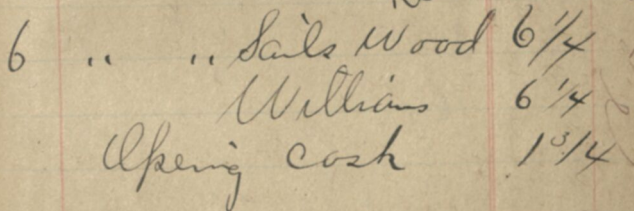 6 " " Sails Wood 6 1/4
Williams 6 1/4
Opening cash 1 3/4